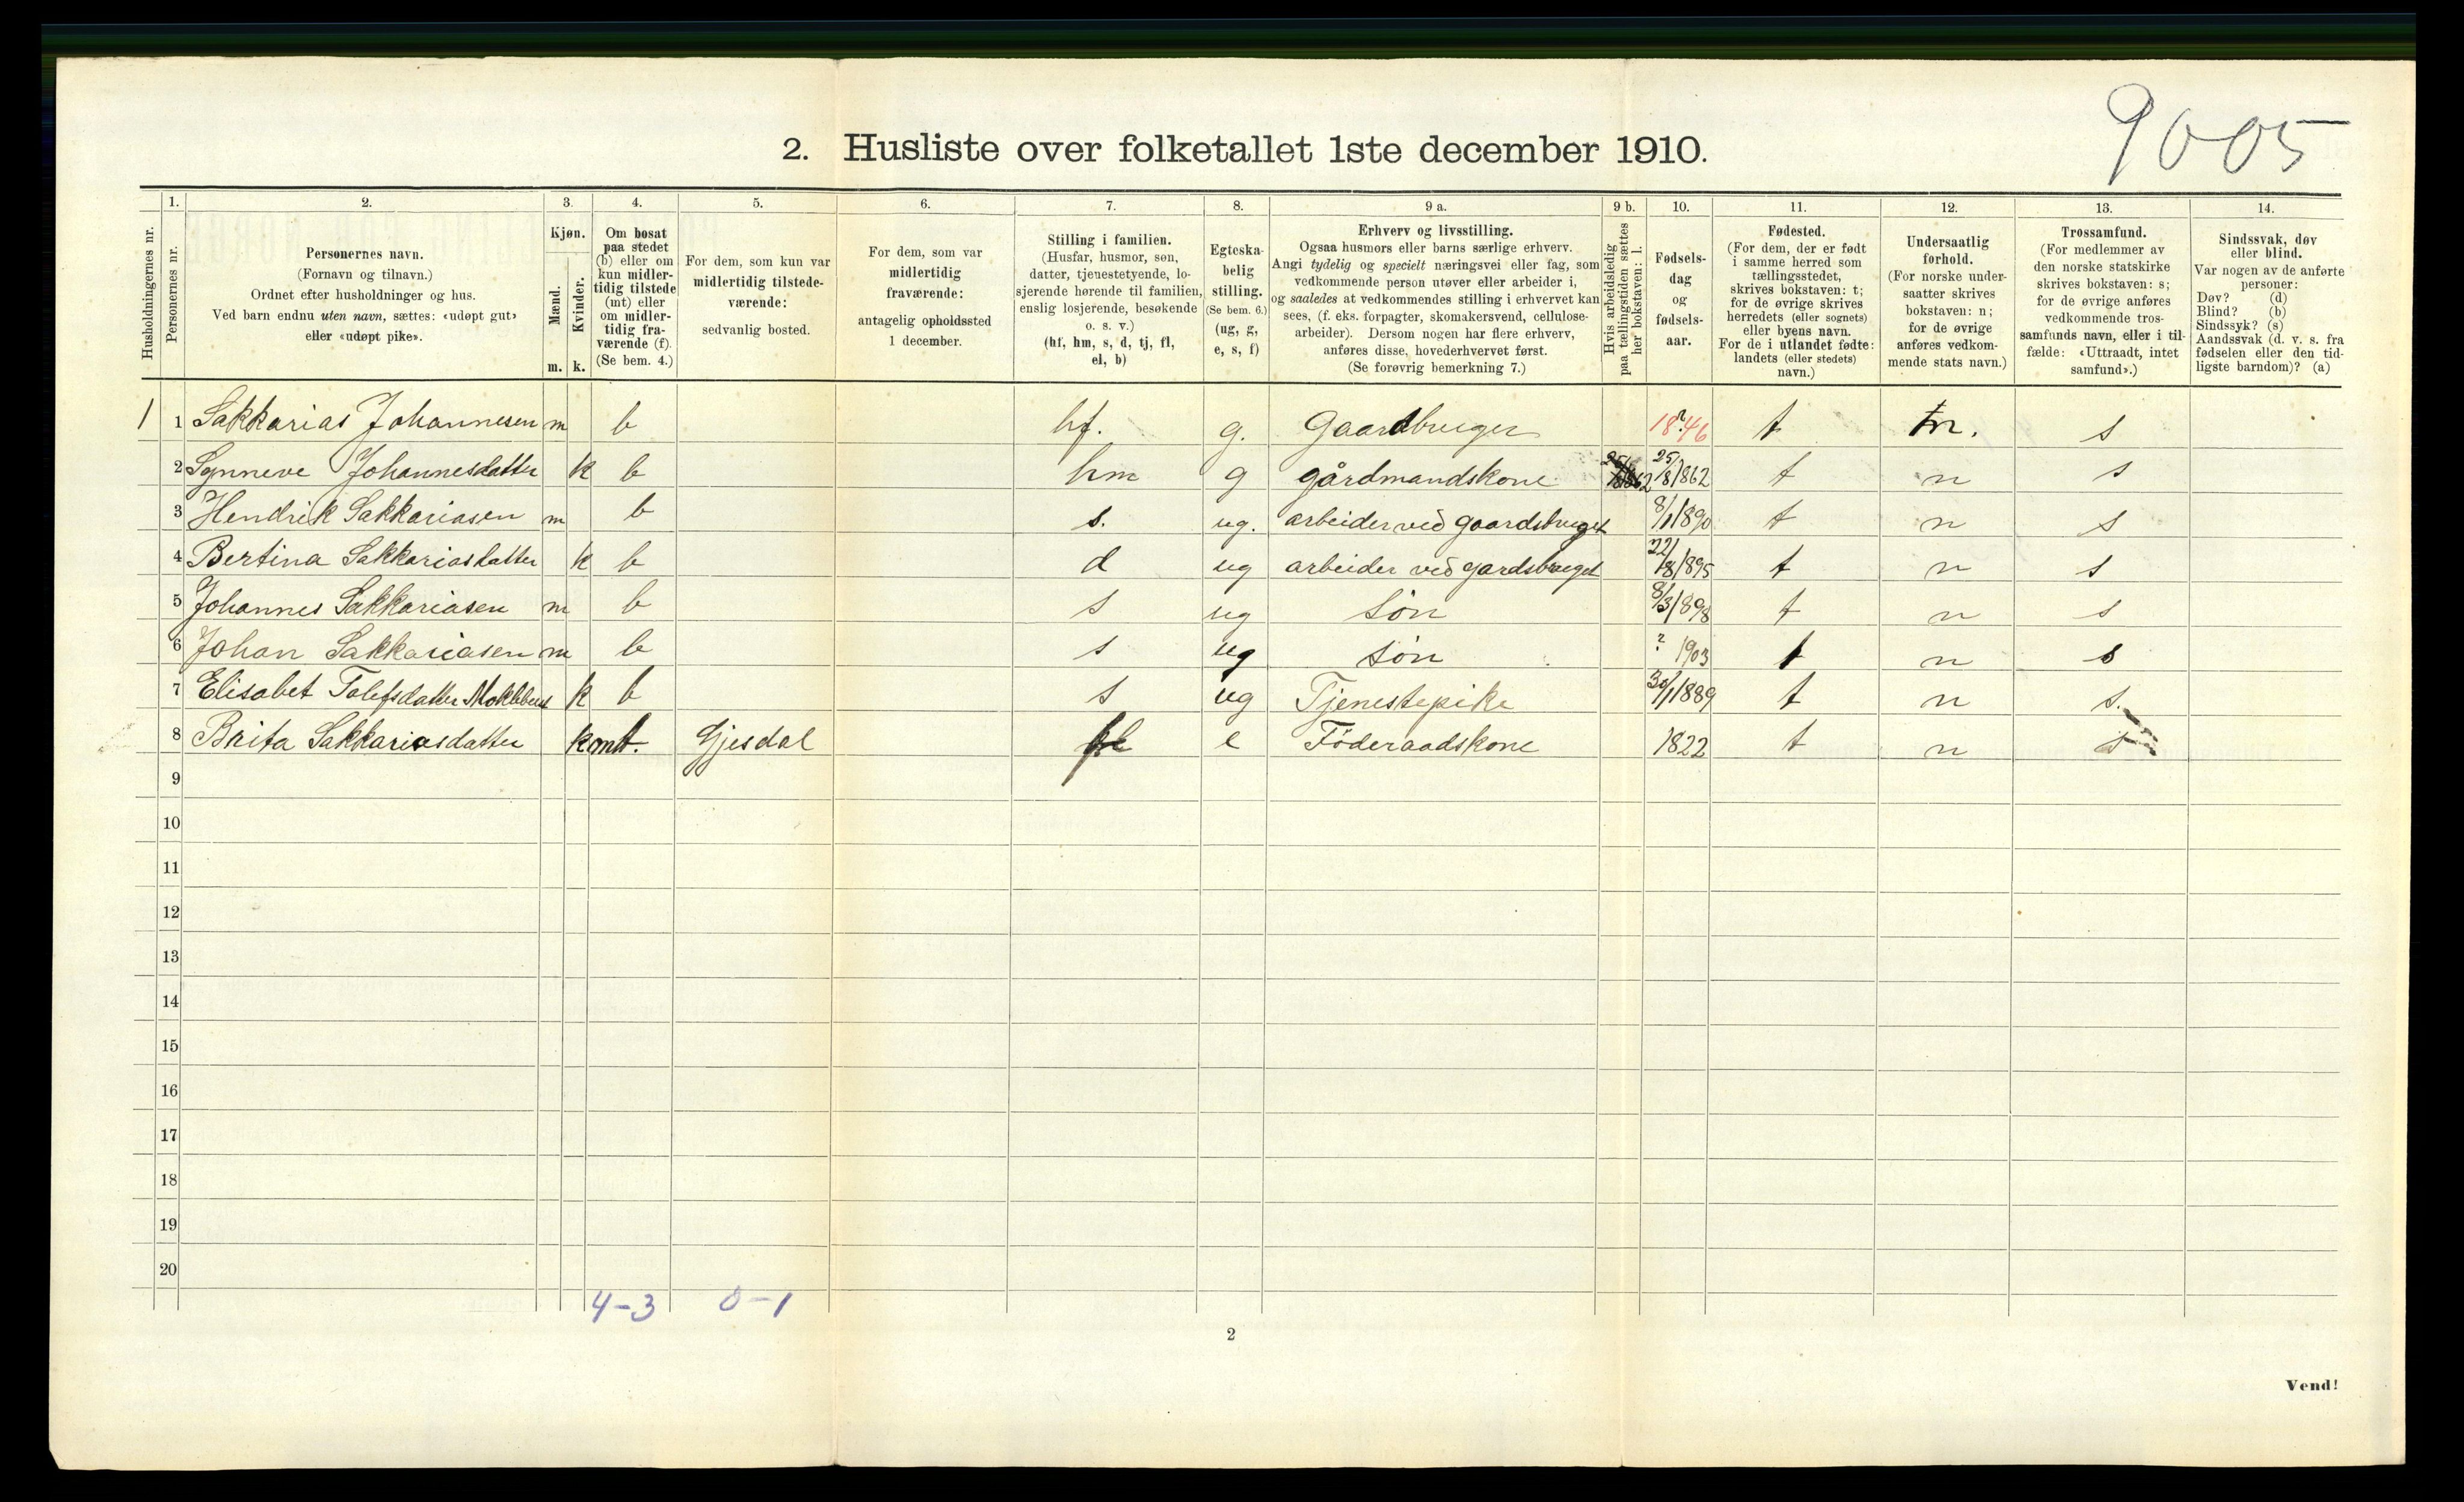 9005
2. Husliste over folketallet 1ste december 1910.
Husholdningernes nr.
1. Personernes nr.
2. Personernes navn.
(Fornavn og tilnavn.)
Ordnet efter husholdninger og hus.
Ved barn endnu uten navn, sættes: «udøpt gut»
eller «udøpt pike».
3. Kjøn.
Mænd. Kvinder.
m. k.
4. Om bosat
paa stedet
(b) eller om
kun midler-
tidig tilstede
(mt) eller
om midler-
tidig fra-
værende (f).
(Se bem. 4.)
5. For dem, som kun var
midlertidig tilstede-
værende:
sedvanlig bosted.
6. For dem, som var
midlertidig
fraværende:
antagelig opholdssted
1 december.
7. Stilling i familien.
(Husfar, husmor, søn,
datter, tjenestetyende, lo-
sjerende hørende til familien,
enslig losjerende, besøkende
o. s. v.)
(hf, hm, s, d, tj, fl,
el, b)
8. Egteska-
belig
stilling.
(Se bem. 6.)
(ug, g,
e, s, f)
9 a. Erhverv og livsstilling.
Ogsaa husmors eller barns særlige erhverv.
Angi tydelig og specielt næringsvei eller fag, som
vedkommende person utøver eller arbeider i,
og saaledes at vedkommendes stilling i erhvervet kan
sees, (f. eks. forpagter, skomakersvend, cellulose-
arbeider). Dersom nogen har flere erhverv,
anføres disse, hovederhvervet først.
(Se forøvrig bemerkning 7.)
9 b. Hvis arbeidsledig
paa tællingstiden sættes
her bokstaven: l.
10. Fødsels-
dag
og
fødsels-
aar.
11. Fødested.
(For dem, der er født
i samme herred som
tællingsstedet,
skrives bokstaven: t;
for de øvrige skrives
herredets (eller sognets)
eller byens navn.
For de i utlandet fødte:
landets (eller stedets)
navn.)
12. Undersaatlig
forhold.
(For norske under-
saatter skrives
bokstaven: n;
for de øvrige
anføres vedkom-
mende stats navn.)
13. Trossamfund.
(For medlemmer av
den norske statskirke
skrives bokstaven: s;
for de øvrige anføres
vedkommende tros-
samfunds navn, eller i til-
fælde: «Uttraadt, intet
samfund».)
14. Sindssvak, døv
eller blind.
Var nogen av de anførte
personer:
Døv? (d)
Blind? (b)
Sindssyk? (s)
Aandssvak (d. v. s. fra
fødselen eller den tid-
ligste barndom)? (a)
1 1 Sakkarias Johannesen m b hf. g. Gaardbruger ? 1846 t n. s
2 Synneve Johannesdatter k b hm g gårdmandskone 25/8 1862 t n s
3 Hendrik Sakkariasen m b s. ug. arbeider ved gaardsbruget 8/1 1890 t n s
4 Bertina Sakkariasdatter k b d ug arbeider ved gardsbruget 22/8 1895 t n s
5 Johannes Sakkariasen m b s ug søn 8/3 1898 t n s
6 Johan Sakkariasen m b s ug søn ? 1903 t n s
7 Elisabet Tolefsdatter k b s ug Tjenestepike 30/1 1889 t n s.
8 Brita Sakkariasdatter k mt. Gjesdal e Föderaadskone 1822 t n s
9
10
11
12
13
14
15
16
17
18
19
20
4-3 0-1
2
Vend!